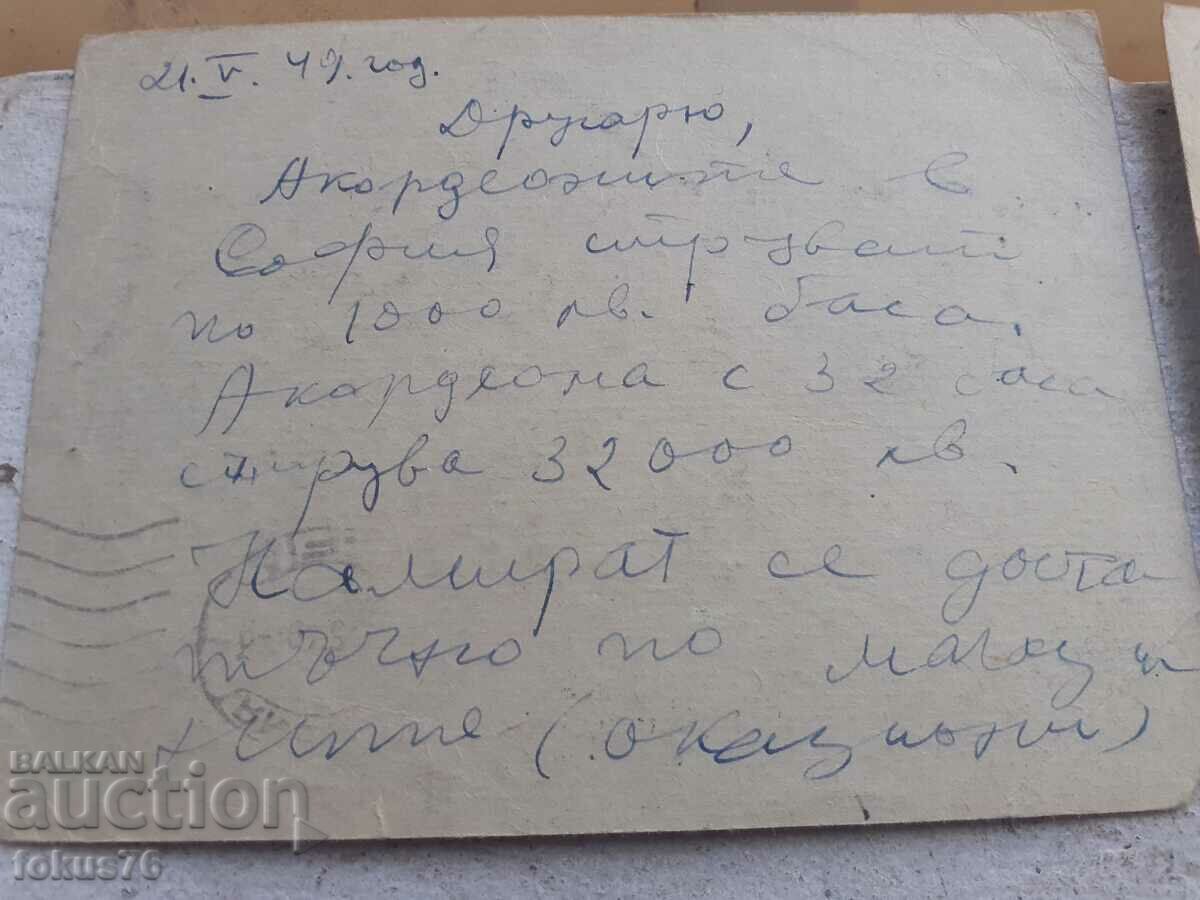 21. V. 49. год.
Другарю,
Акордеоните в
София струват
по 1000 лв. баса.
Акордеона с 32 баса
струва 32000 лв.
Намират се доста
тъчно по магази
ните (оказиони)
BALKAN
auction
fokus76